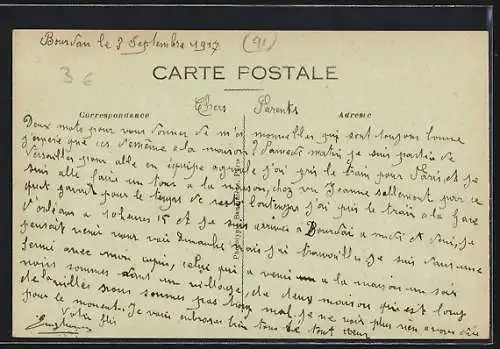 Bourdan le 8 Septembre 1917 (91)
3 6
CARTE POSTALE
Correspondance Adresse
Chers Parents
Deux mots pour vous donner de m'es nouvelles qui sont toujour bonne
j'espère que ces d'même a la maison ? Samedi matin je suis partie de
Versailles pour allé en équipe agricole j'ai pris le train pour Paris, et je
suis allé faire un tour a la maison, chez
pour le temps de resté longtemps j'ai pris le train a la gare
d'orléans a 10 heures 15 et je suis arrivée a Bourdan a midi et demi, je
pensait venir vous voir Dimanche mais j'ai travaillé je suis dans une
fermé avec mon copin, celui qui a venu a la maison un soir
nous sommes dont un village de deux maison qui est loup
de la ville nous sommes pas trop mal, je ne voit plus rien a vous dire
pour le moment. Je vous embrasse bien tous de tout cœur
Votre fils